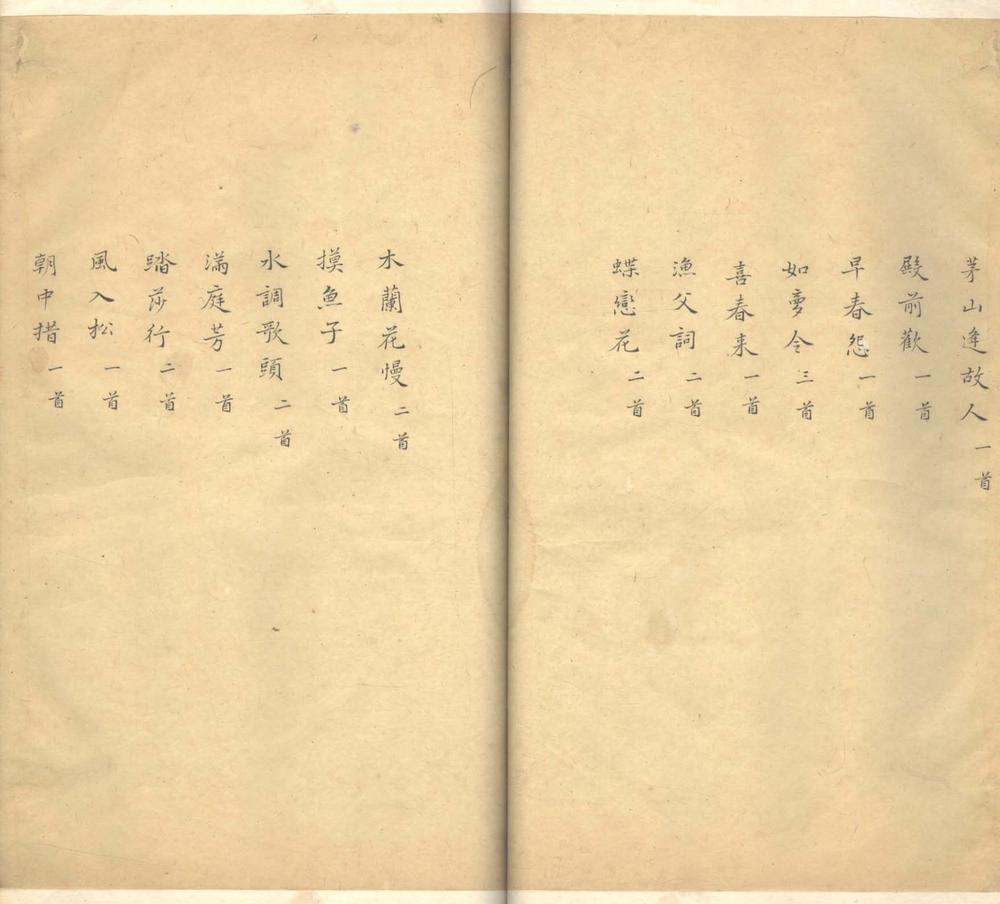 茅山逢故人一首
殿前歡一首
早春怨一首
如夢令三首
喜春來一首
漁父詞二首
蝶戀花二首
木蘭花慢二首
摸魚子一首
水調歌頭二首
滿庭芳一首
踏莎行二首
風入松一首
朝中措一首